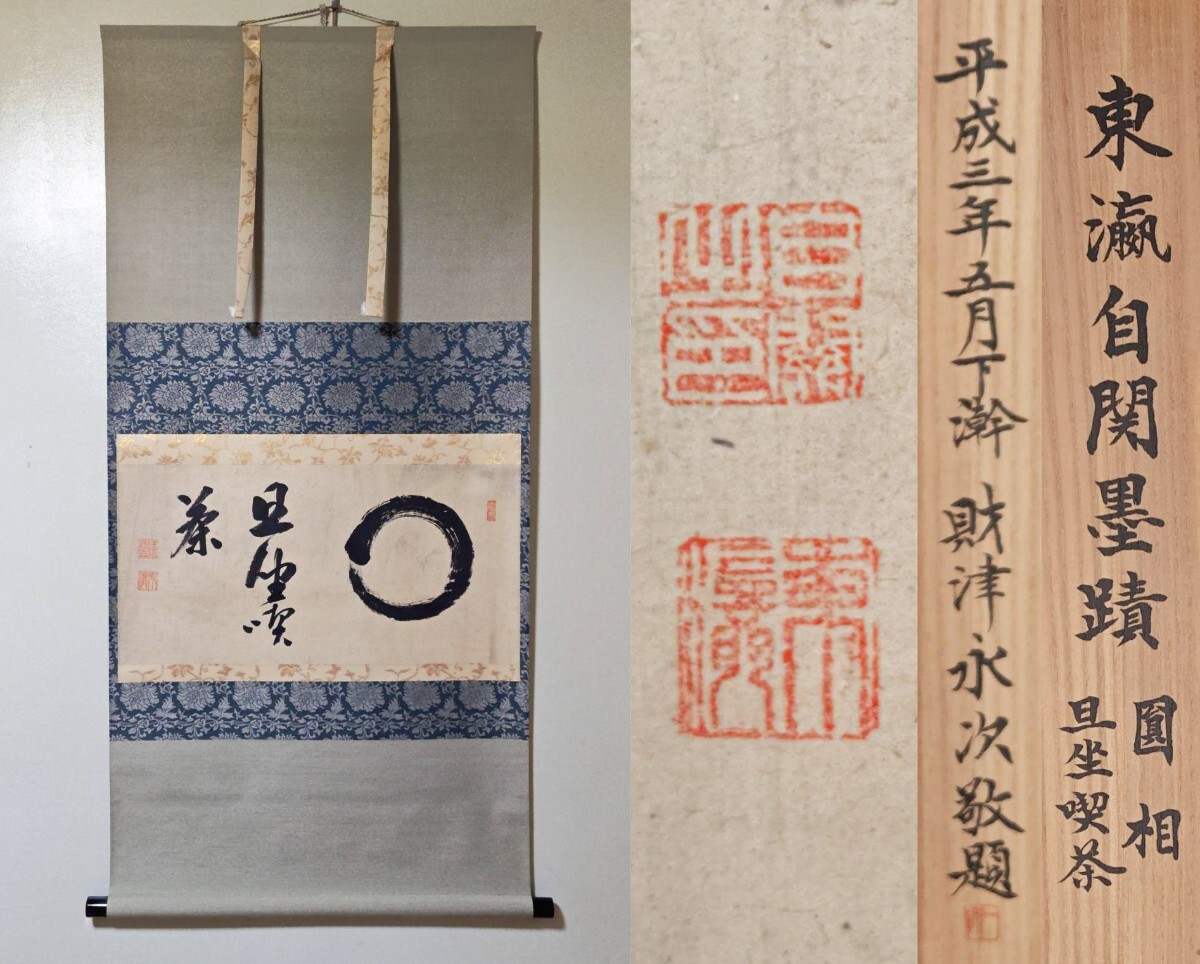 且坐喫
茶
東瀛自関墨蹟
圓相
且坐喫茶
平成三年五月下澣 財津永次敬題